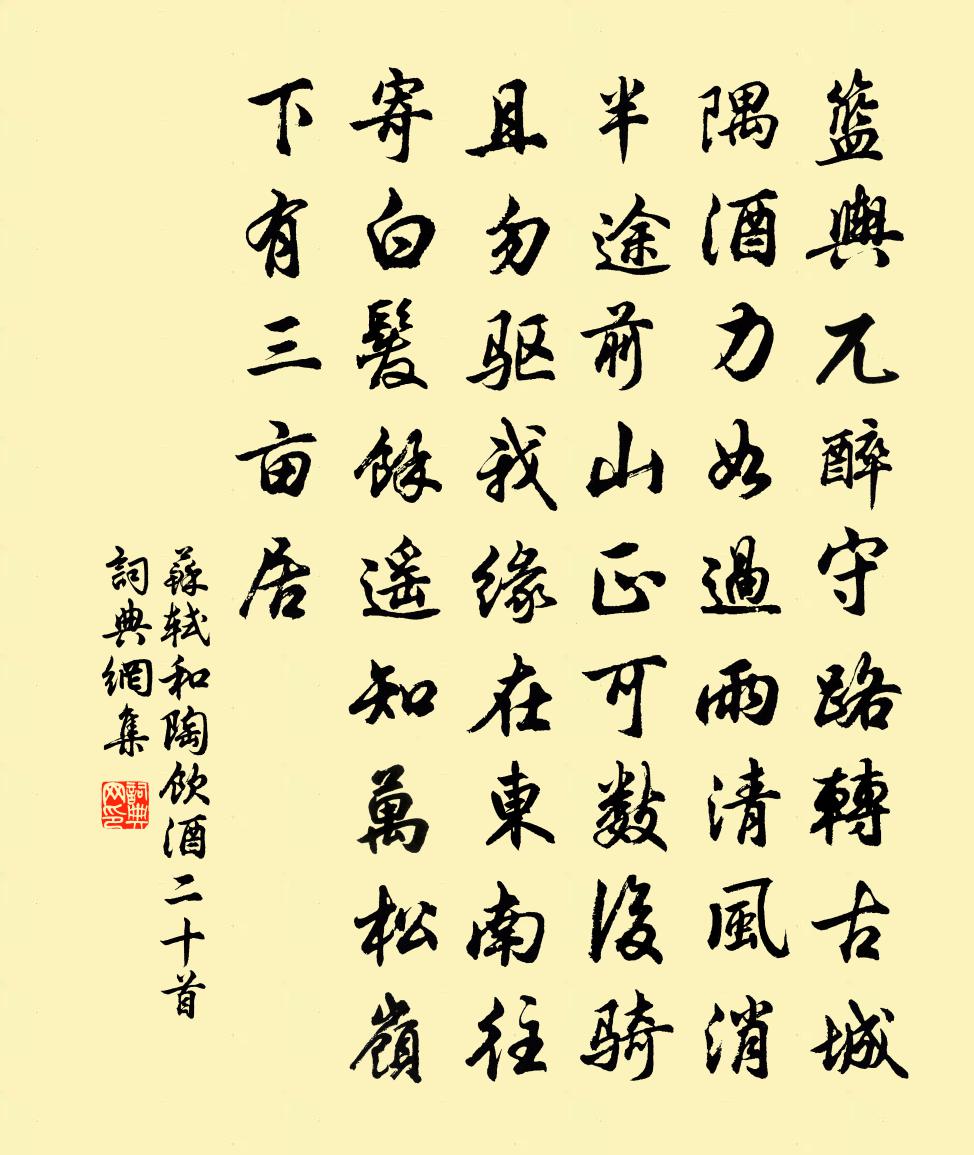 籃輿兀醉守路轉古城
隅酒力如過雨清風消
半途前山正可數後騎
且勿驱我緣在東南往
寄白髮餘遥知萬松嶺
下有三亩居
蘇軾和陶飲酒二十首
詞典網集
詞典网印